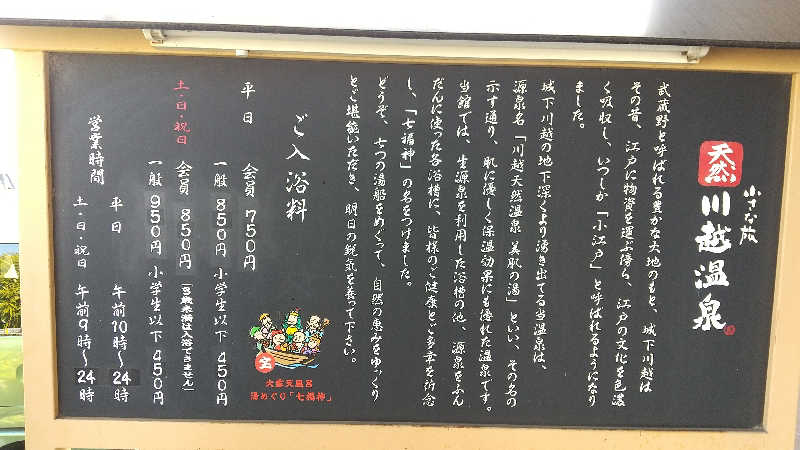 小さな旅
天然
川越温泉
武蔵野と呼ばれる豊かな大地のもと、城下川越は
その昔、江戸に物資を運ぶ傍ら、江戸の文化を色濃
く吸収し、いつしか「小江戸」と呼ばれるようになり
ました。
城下川越の地下深くより湧き出てる当温泉は、
源泉名「川越天然温泉 美肌の湯」といい、その名の
示す通り、肌に優しく保温効果にも優れた温泉です。
当館では、生源泉を利用した浴槽の他、源泉をふん
だんに使った各浴槽に、皆様のご健康とご多幸を祈念
し、「七福神」の名をつけました。
どうぞ、七つの湯船をめぐって、自然の恵みをゆっくり
とご堪能いただき、明日の鋭気を養って下さい。
宝
大露天風呂
湯めぐり「七福神」
ご入浴料
平日 会員 750円
一般 850円 小学生以下 450円
土・日・祝日 会員 850円
一般 950円 小学生以下 450円
営業時間
平日 午前10時〜24時
土・日・祝日 午前9時〜24時